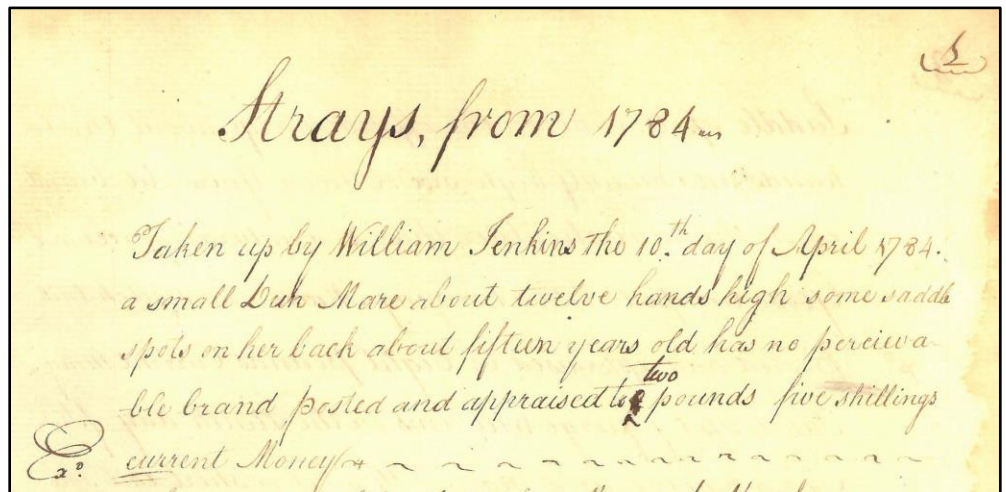 1
Strays, from 1784
Taken up by William Jenkins the 10.th day of April 1784.
a small Dun Mare about twelve hands high some saddle
spots on her back about fifteen years old has no perceiva
two
ble brand posted and appraised to pounds five shillings
Exd. current Money